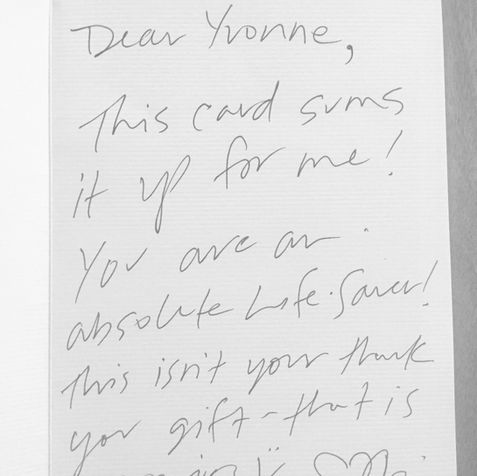 Dear Yvonne,
This card sums
it up for me!
You are an
absolute Life-Saver!
This isn't your thank
you gift - that is